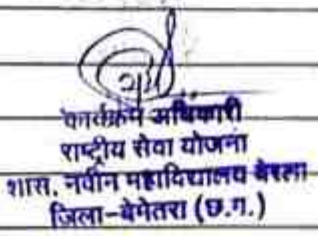 कार्यक्रम अधिकारी
राष्ट्रीय सेवा योजना
शास. नवीन महाविद्यालय बेरला
जिला-बेमेतरा (छ.ग.)